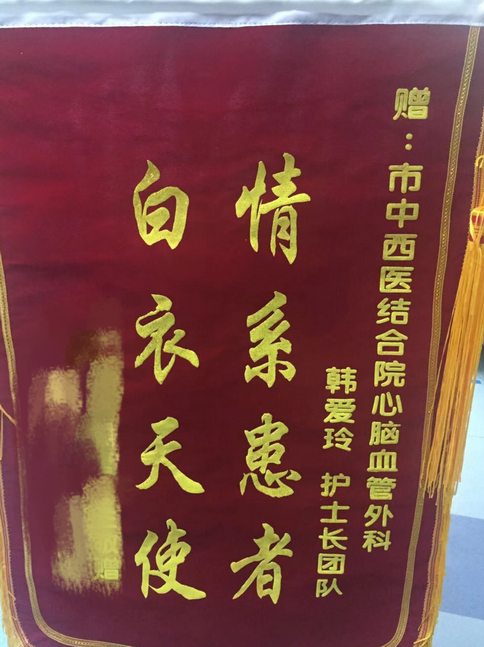 赠：市中西医结合院心脑血管外科
韩爱玲 护士长团队
情系患者
白衣天使